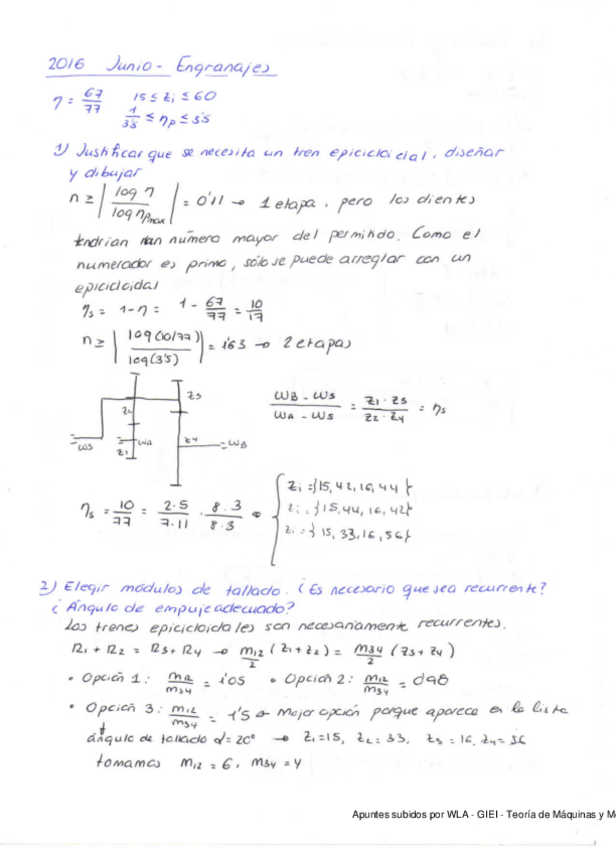 2016 Junio - Engranajes
η = 67/77   15 ≤ zi ≤ 60
1/3'5 ≤ ηp ≤ 3'5
1) Justificar que se necesita un tren epicicloidal, diseñar
y dibujar
n ≥ | log η / log ηpmax | = 0'11 → 1 etapa, pero los dientes
tendrían un número mayor del permitido. Como el
numerador es primo, sólo se puede arreglar con un
epicicloidal
ηs = 1 - η = 1 - 67/77 = 10/17
n ≥ | log(10/77) / log(3'5) | = 1'63 → 2 etapas
z3
z2
ωB - ωs / ωA - ωs = z1 · z3 / z2 · z4 = ηs
ωs   ωA   z4   ωB
z1
ηs = 10/77 = 2·5 / 7·11 · 8·3 / 8·3
zi = {15, 42, 16, 44}
zi = {15, 44, 16, 42}
zi = {15, 33, 16, 56}
2) Elegir módulos de tallado. ¿Es necesario que sea recurrente?
¿Ángulo de empuje adecuado?
Los trenes epicicloidales son necesariamente recurrentes.
R1 + R2 = R3 + R4 → m12/2 (z1 + z2) = m34/2 (z3 + z4)
• Opción 1: m12/m34 = 1'05   • Opción 2: m12/m34 = 0'98
• Opción 3: m12/m34 = 1'5 ← Mejor opción porque aparece en la lista
ángulo de tallado α = 20° → z1 = 15, z2 = 33, z3 = 16, z4 = 56
tomamos m12 = 6, m34 = 4
Apuntes subidos por WLA - GIEI - Teoría de Máquinas y M